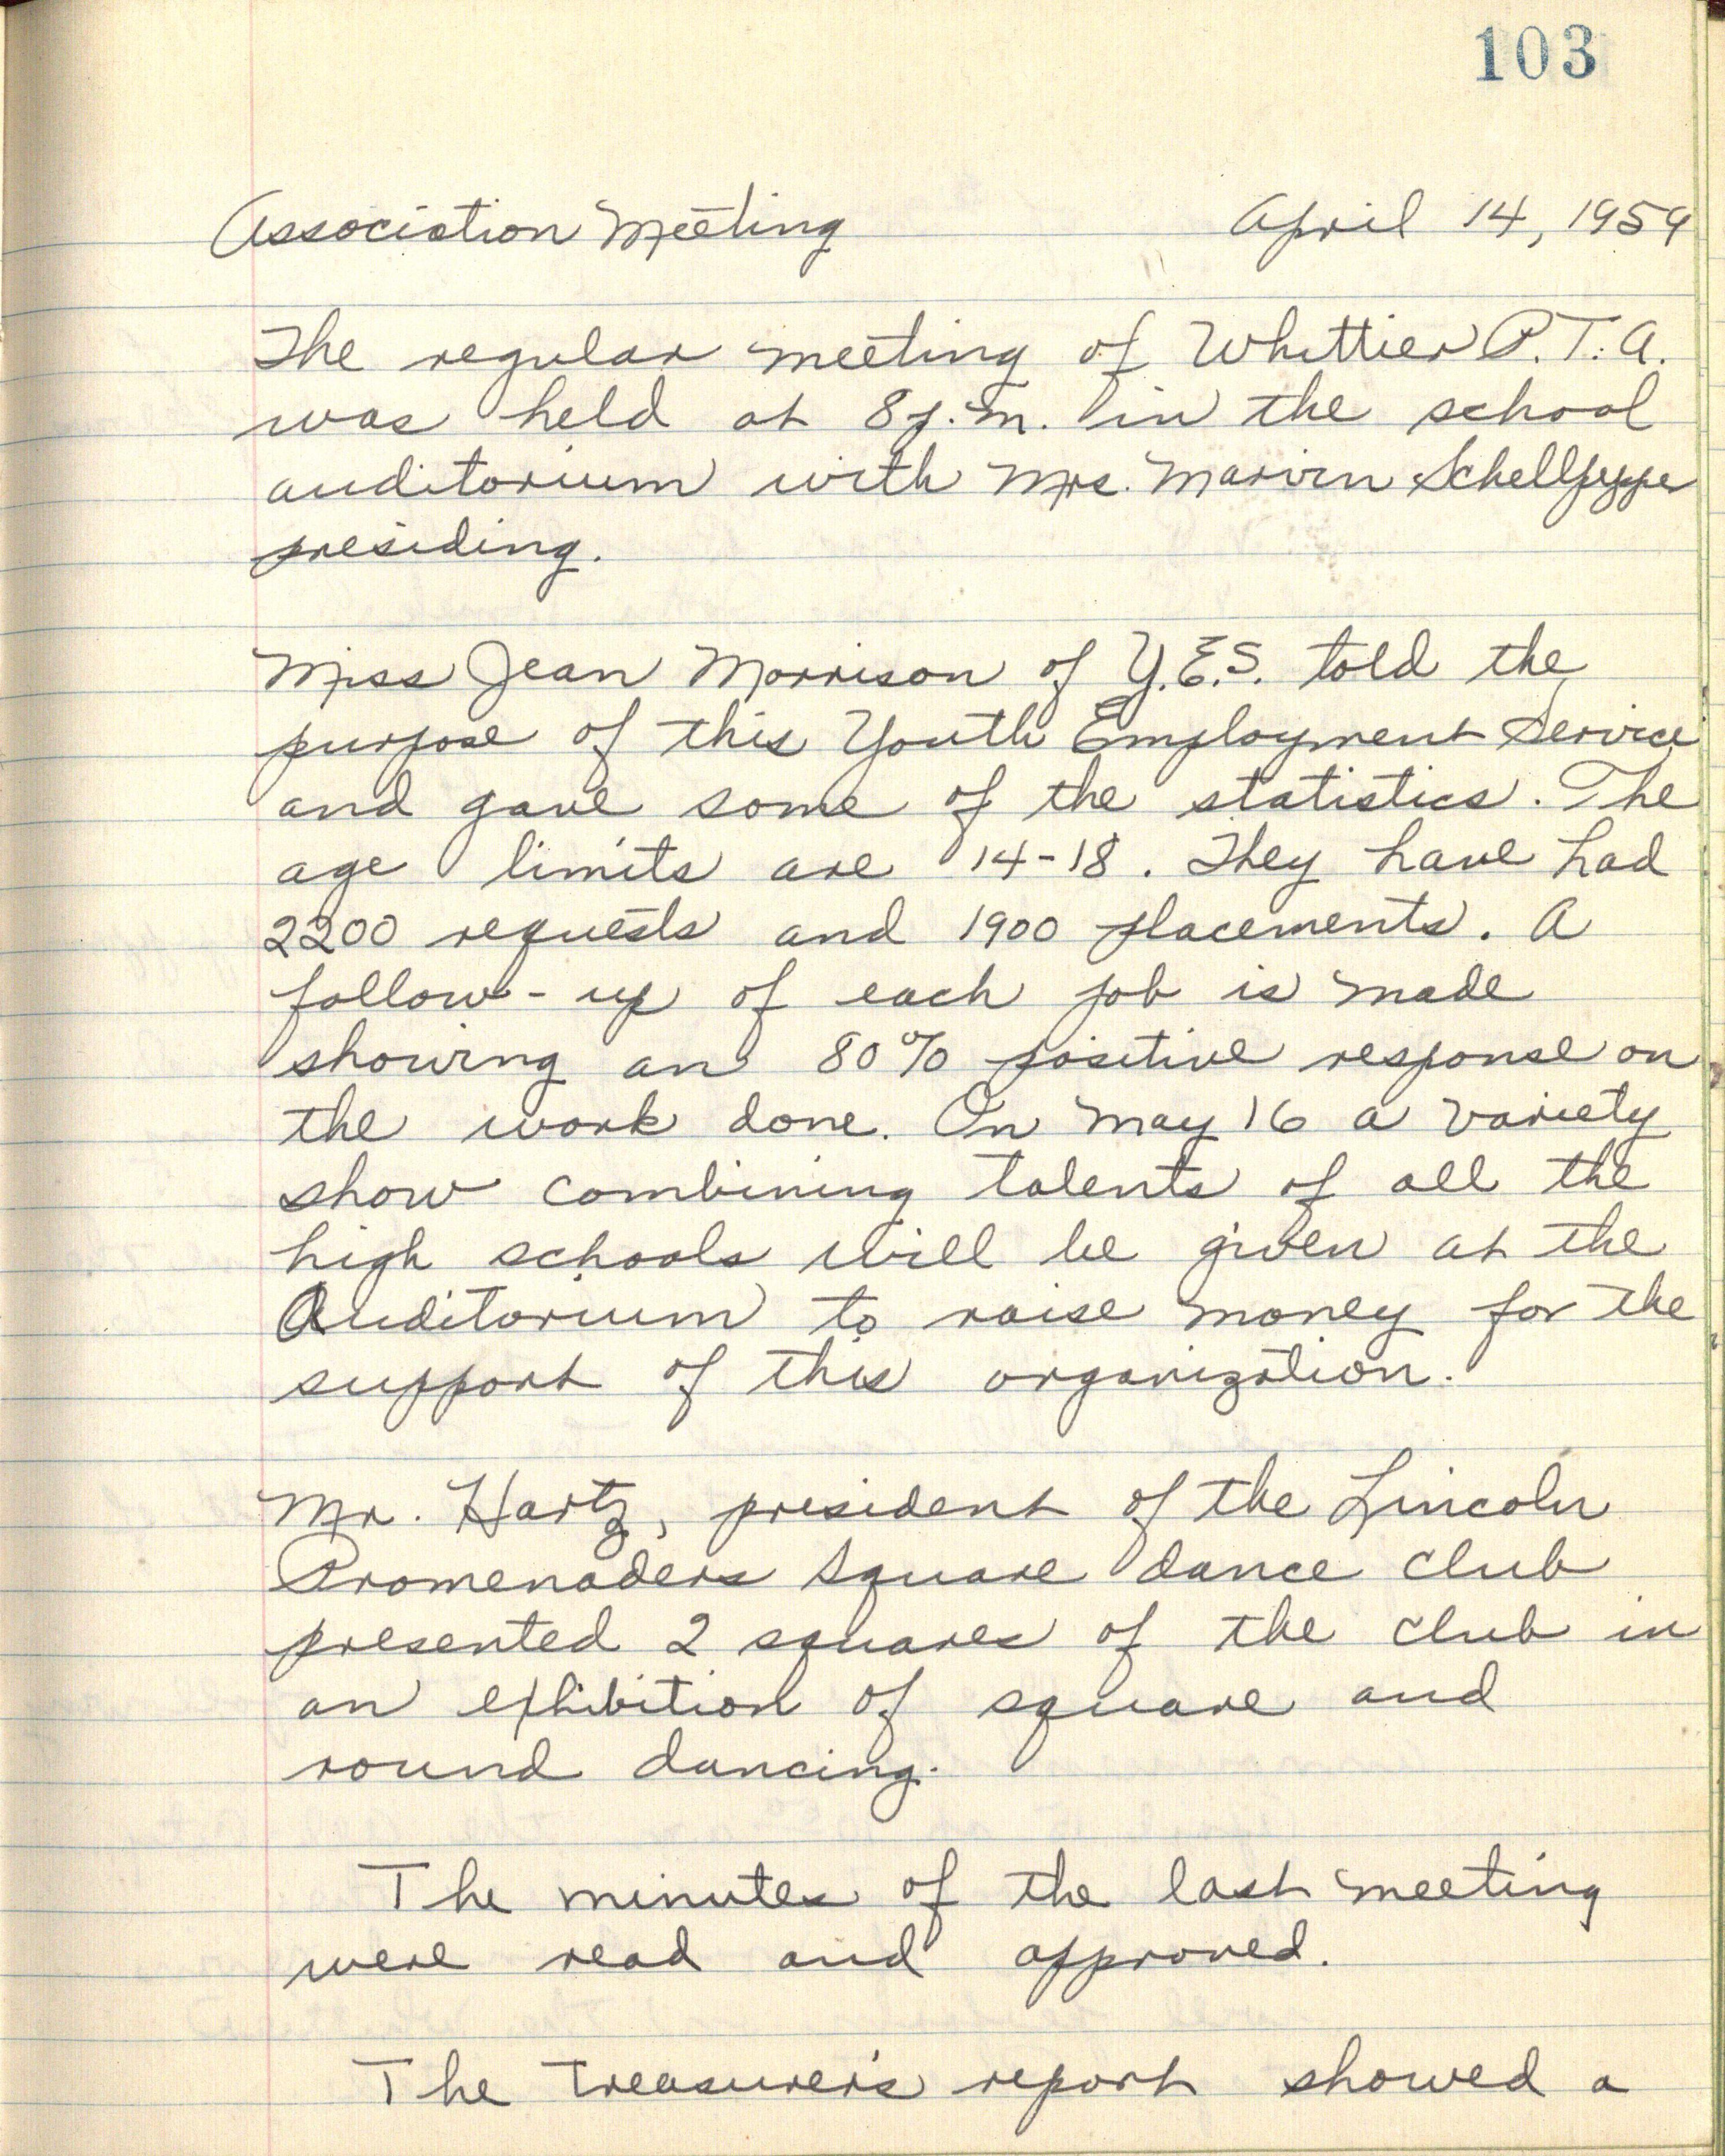 103
Association Meeting April 14, 1959
The regular meeting of Whittier P.T.A.
was held at 8 p.m. in the school
auditorium with Mrs. Marvin Schellpeppe
presiding.
Miss Jean Morrison of Y.E.S. told the
purpose of this Youth Employment Service
and gave some of the statistics. The
age limits are 14-18. They have had
2200 requests and 1900 placements. A
follow-up of each job is made
showing an 80% positive response on
the work done. On May 16 a variety
show combining talents of all the
high schools will be given at the
Auditorium to raise money for the
support of this organization.
Mr. Hartz, president of the Lincoln
Promenaders Square dance club
presented 2 squares of the club in
an exhibition of square and
round dancing.
The minutes of the last meeting
were read and approved.
The treasurer's report showed a